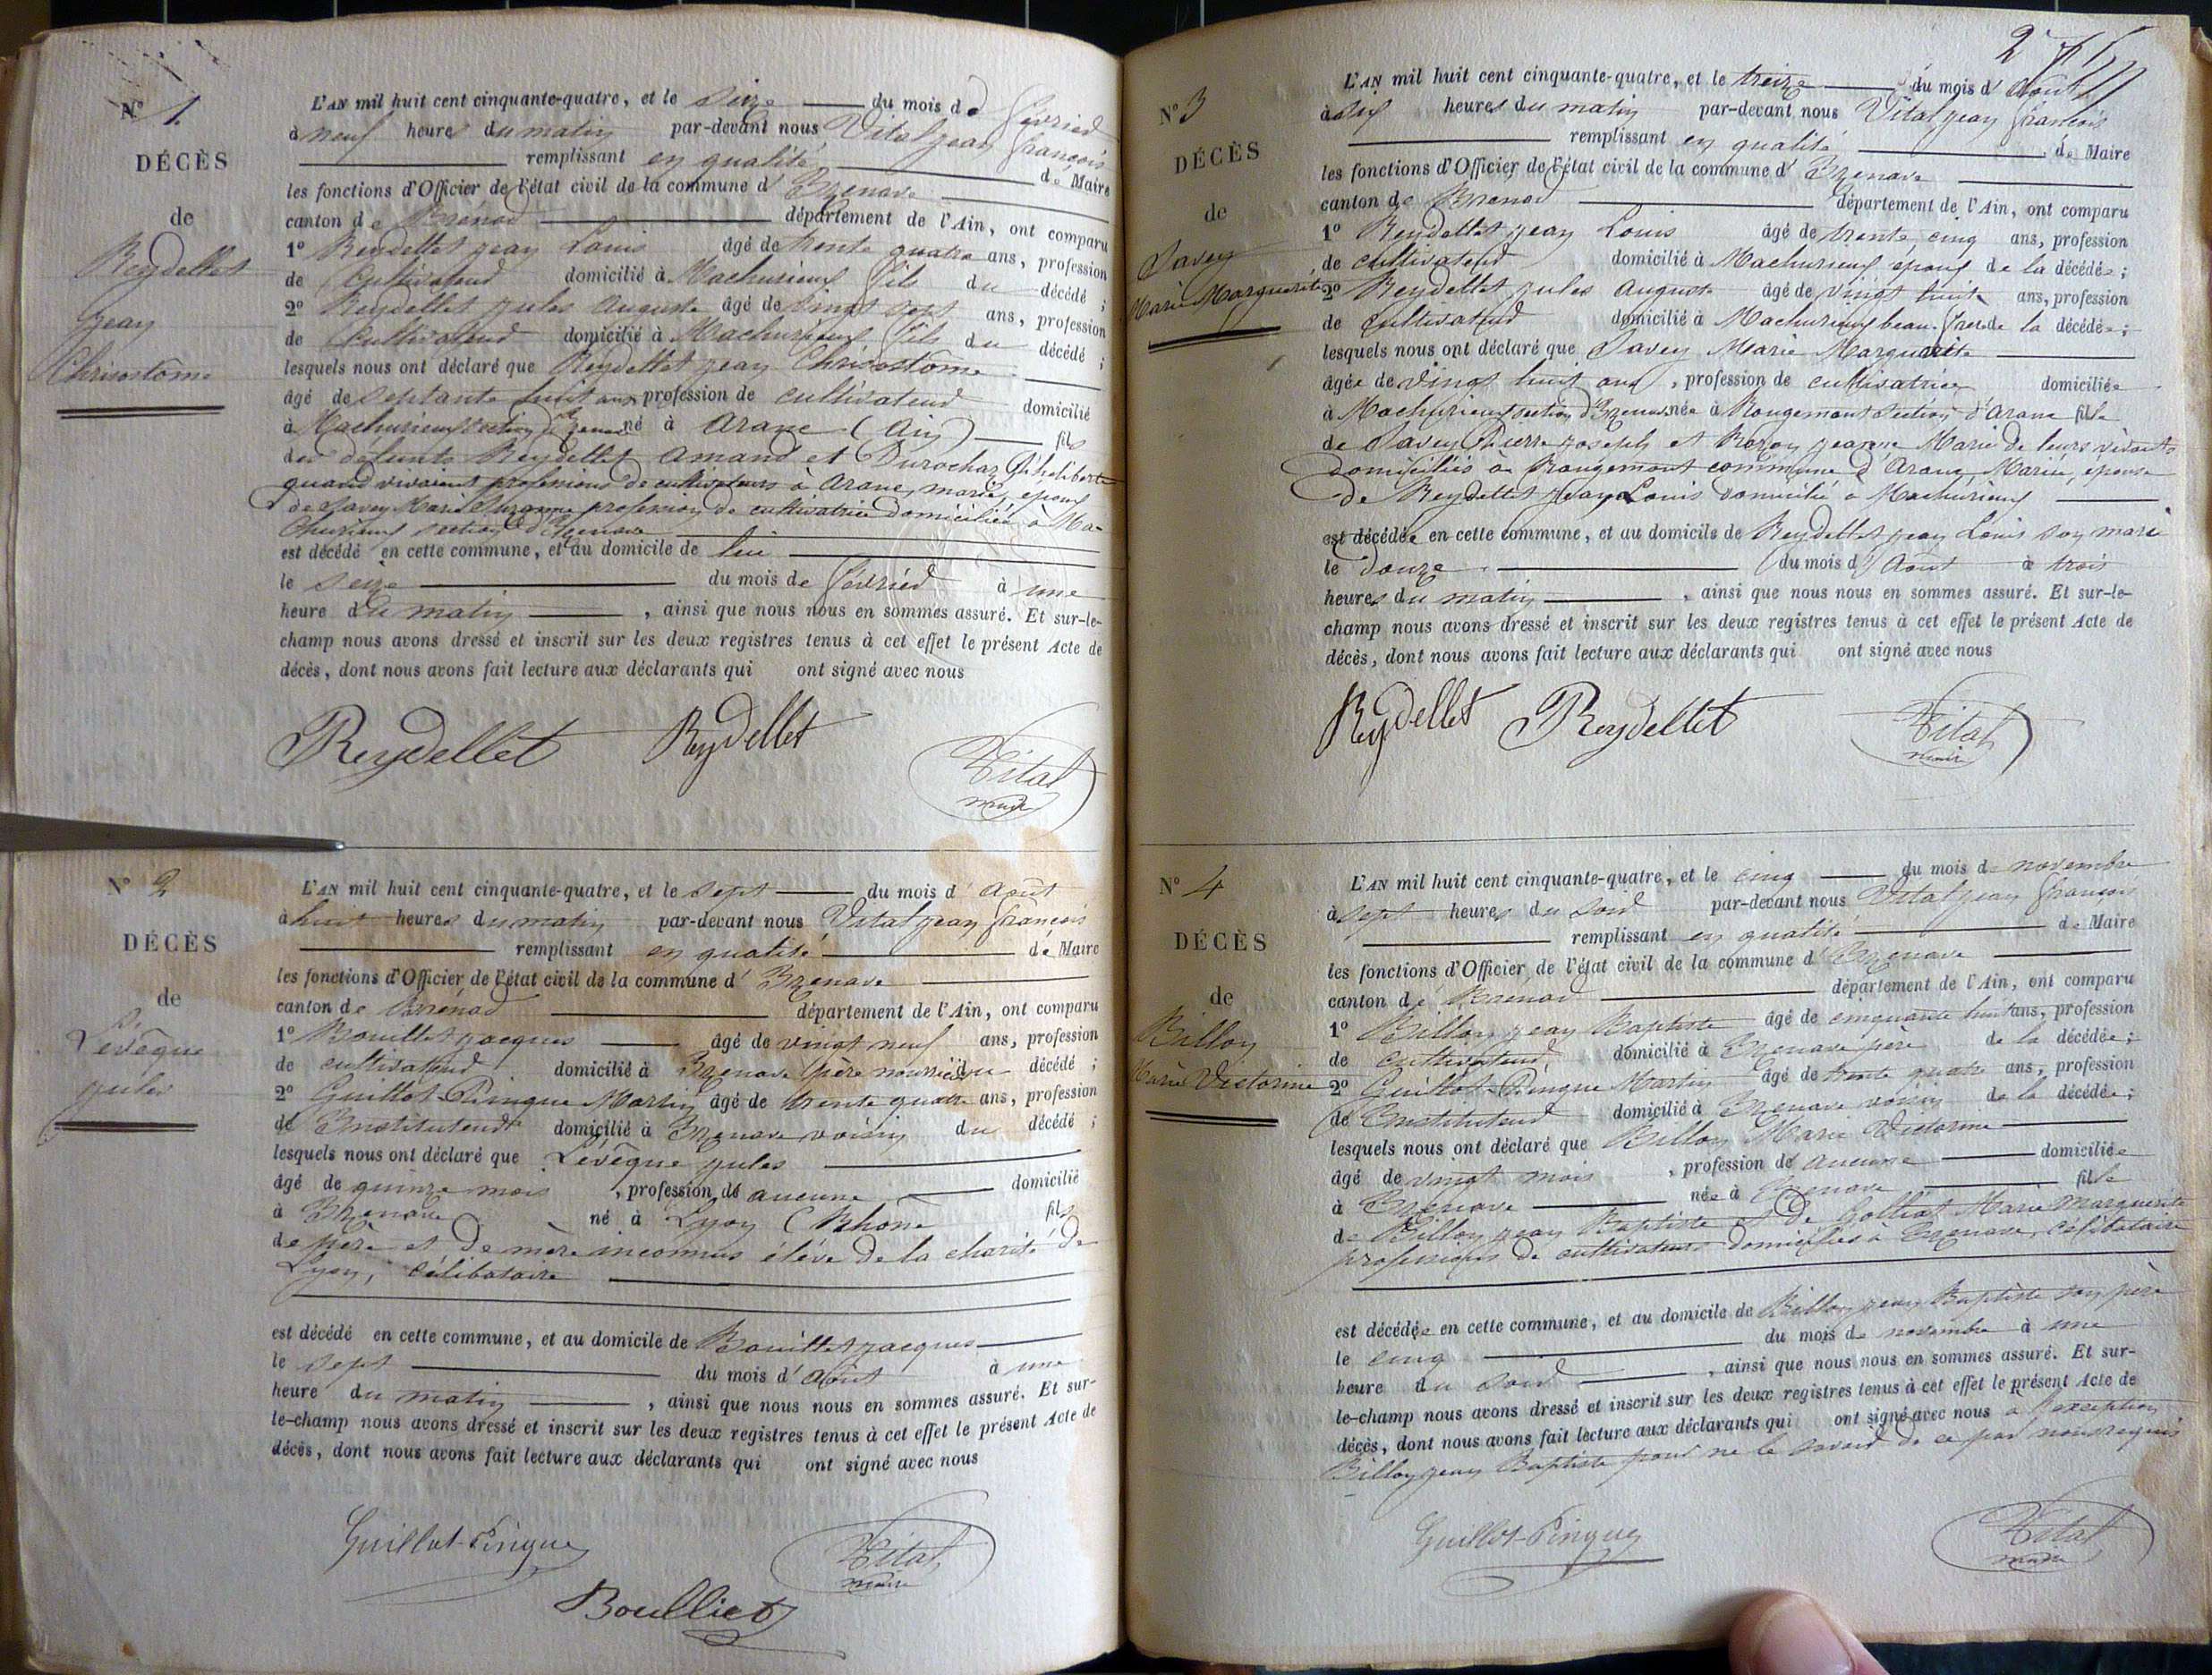 N° 1.
DÉCÈS
de
Reydellet
jean
Chrisostome
L'AN mil huit cent cinquante-quatre, et le seize du mois de février
à neuf heures du matin par-devant nous Vital jean françois
remplissant en qualité de Maire
les fonctions d'Officier de l'état civil de la commune d' Izenave
canton de Brénod département de l'Ain, ont comparu
1° Reydellet jean Louis âgé de trente quatre ans, profession
de cultivateur domicilié à Machurieux fils du décédé ;
2° Reydellet jules auguste âgé de vingt sept ans, profession
de cultivateur domicilié à Machurieux fils du décédé ;
lesquels nous ont déclaré que Reydellet jean Chrisostome
âgé de septante huit ans profession de cultivateur domicilié
à Machurieux section d'Izenave né à Arane (Ain) fils
des défunts Reydellet Amand et Durochat Philiberte
quand vivaient professions de cultivateurs à Arane, marié, époux
de Savey Marie Suzanne profession de cultivatrice domiciliée à Ma-
churieux section d'Izenave
est décédé en cette commune, et au domicile de lui
le seize du mois de février à une
heure du matin , ainsi que nous nous en sommes assuré. Et sur-le-
champ nous avons dressé et inscrit sur les deux registres tenus à cet effet le présent Acte de
décès, dont nous avons fait lecture aux déclarants qui ont signé avec nous
Reydellet Reydellet Vital
maire
N° 2
DÉCÈS
de
Levêque
jules
L'AN mil huit cent cinquante-quatre, et le sept du mois d' août
à huit heures du matin par-devant nous Vital jean françois
remplissant en qualité de Maire
les fonctions d'Officier de l'état civil de la commune d' Izenave
canton de Brénod département de l'Ain, ont comparu
1° Bouillet jacques âgé de vingt neuf ans, profession
de cultivateur domicilié à Izenave père nourricier du décédé ;
2° Guillot-Pingue Martin âgé de trente quatre ans, profession
de Instituteur domicilié à Izenave voisin du décédé ;
lesquels nous ont déclaré que Levêque jules
âgé de quinze mois , profession de aucune domicilié
à Izenave né à Lyon (Rhône fils
de père et de mère inconnus élève de la charité de
Lyon, célibataire
est décédé en cette commune, et au domicile de Bouillet jacques
le sept du mois d' août à une
heure du matin , ainsi que nous nous en sommes assuré. Et sur-
le-champ nous avons dressé et inscrit sur les deux registres tenus à cet effet le présent Acte de
décès, dont nous avons fait lecture aux déclarants qui ont signé avec nous
Guillot-Pingue Vital
maire
Boulliet
2
N° 3
DÉCÈS
de
Savey
Marie Marguerite
L'AN mil huit cent cinquante-quatre, et le treize du mois d' Août
à six heures du matin par-devant nous Vital jean françois
remplissant en qualité de Maire
les fonctions d'Officier de l'état civil de la commune d' Izenave
canton de Brenod département de l'Ain, ont comparu
1° Reydellet jean Louis âgé de trente cinq ans, profession
de cultivateur domicilié à Machurieux epoux de la décédée ;
2° Reydellet jules auguste âgé de vingt huit ans, profession
de cultivateur domicilié à Machurieux beau-frère de la décédée ;
lesquels nous ont déclaré que Savey Marie Marguerite
âgée de vingt huit ans , profession de cultivatrice domiciliée
à Machurieux section d'Izenave née à Rougemont section d'Arane fille
de Savey Pierre joseph et Rozon jeanne Marie de leurs vivants
domiciliés à Rougemont commune d'Arane, Mariée, epouse
de Reydellet jean Louis domicilié à Machurieux
est décédée en cette commune, et au domicile de Reydellet jean Louis son mari
le douze du mois d' Août à trois
heures du matin , ainsi que nous nous en sommes assuré. Et sur-le-
champ nous avons dressé et inscrit sur les deux registres tenus à cet effet le présent Acte de
décès, dont nous avons fait lecture aux déclarants qui ont signé avec nous
Reydellet Reydellet Vital
maire
N° 4
DÉCÈS
de
Billon
Marie Victorine
L'AN mil huit cent cinquante-quatre, et le cinq du mois de novembre
à sept heures du soir par-devant nous Vital jean françois
remplissant en qualité de Maire
les fonctions d'Officier de l'état civil de la commune d' Izenave
canton de Brénod département de l'Ain, ont comparu
1° Billon jean Baptiste âgé de cinquante huit ans, profession
de cultivateur domicilié à Izenave père de la décédée ;
2° Guillot-Pingue Martin âgé de trente quatre ans, profession
de Instituteur domicilié à Izenave voisin de la décédée ;
lesquels nous ont déclaré que Billon Marie Victorine
âgé de vingt mois , profession de aucune domiciliée
à Izenave née à Izenave fille
de Billon jean Baptiste et de Golliat Marie Marguerite
professions de cultivateurs domiciliés à Izenave, célibataire
est décédée en cette commune, et au domicile de Billon jean Baptiste son père
le cinq du mois de novembre à une
heure du soir , ainsi que nous nous en sommes assuré. Et sur-
le-champ nous avons dressé et inscrit sur les deux registres tenus à cet effet le présent Acte de
décès, dont nous avons fait lecture aux déclarants qui ont signé avec nous à l'exception
Billon jean Baptiste pour ne le savoir de ce par nous requis
Guillot-Pingue Vital
maire